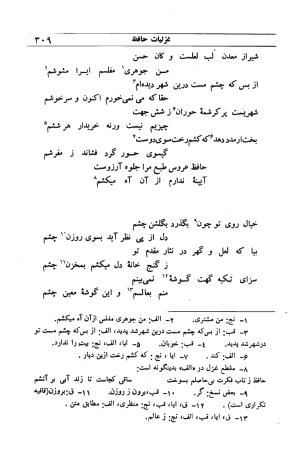 غزلیات حافظ ۳۰۹
شیراز معدن لب لعلست و کان حسن
من جوهری۱ مفلس ایرا مشوشم۲
از بس که چشم مست درین شهر دیده‌ام۳
حقا که می نمی‌خورم اکنون و سرخوشم
شهریست پر کرشمهٔ حوران۴ ز شش جهت
چیزیم نیست ورنه خریدار هر ششم۵
بخت ار مدد دهد۶ که کشم رخت سوی دوست۷
گیسوی حور گرد فشاند ز مفرشم
حافظ عروس طبع مرا جلوه آرزوست
آیینهٔ ندارم از آن آه میکشم۸
خیال روی تو چون۹ بگذرد بگلشن چشم
دل از پی نظر آید بسوی روزن۱۰ چشم
بیا که لعل و گهر در نثار مقدم تو
ز گنج خانهٔ دل میکشم بمخزن۱۱ چشم
سزای تکیه گهت گوشهٔ۱۲ نمی‌بینم
منم بعالم۱۳ و این گوشهٔ معین چشم
۱- نج: من مشتری. ۲- الف: من جوهری مفلس ازآن آه میکشم.
۳- قب: از بی‌که چشم مست درین شهرشد پدید، الف: از بس‌که چشم مست تو
درشهرشد پدید. ۴- قب: خوبان. ۵- ایاء، الف، نج: بیت را ندارد.
۶- الف: کند. ۷- ایاء، نج: که کشم رخت ازین دیار.
۸- مقطع غزل در «الف» بدینگونه است:
حافظ ز تاب فکرت بی‌حاصلم بسوخت ساقی کجاست تا زند آبی بر آتشم
۹- بعض نسخ: گر. ۱۰- قب، برون ز روزن. ۱۱- ق: بروزن (قافیه
تکراری است). ۱۲- ق، ایاء، قب، نج: منظری، الف: مطابق متن.
۱۳- ق، ایاء، قب، نج: ز عالم.